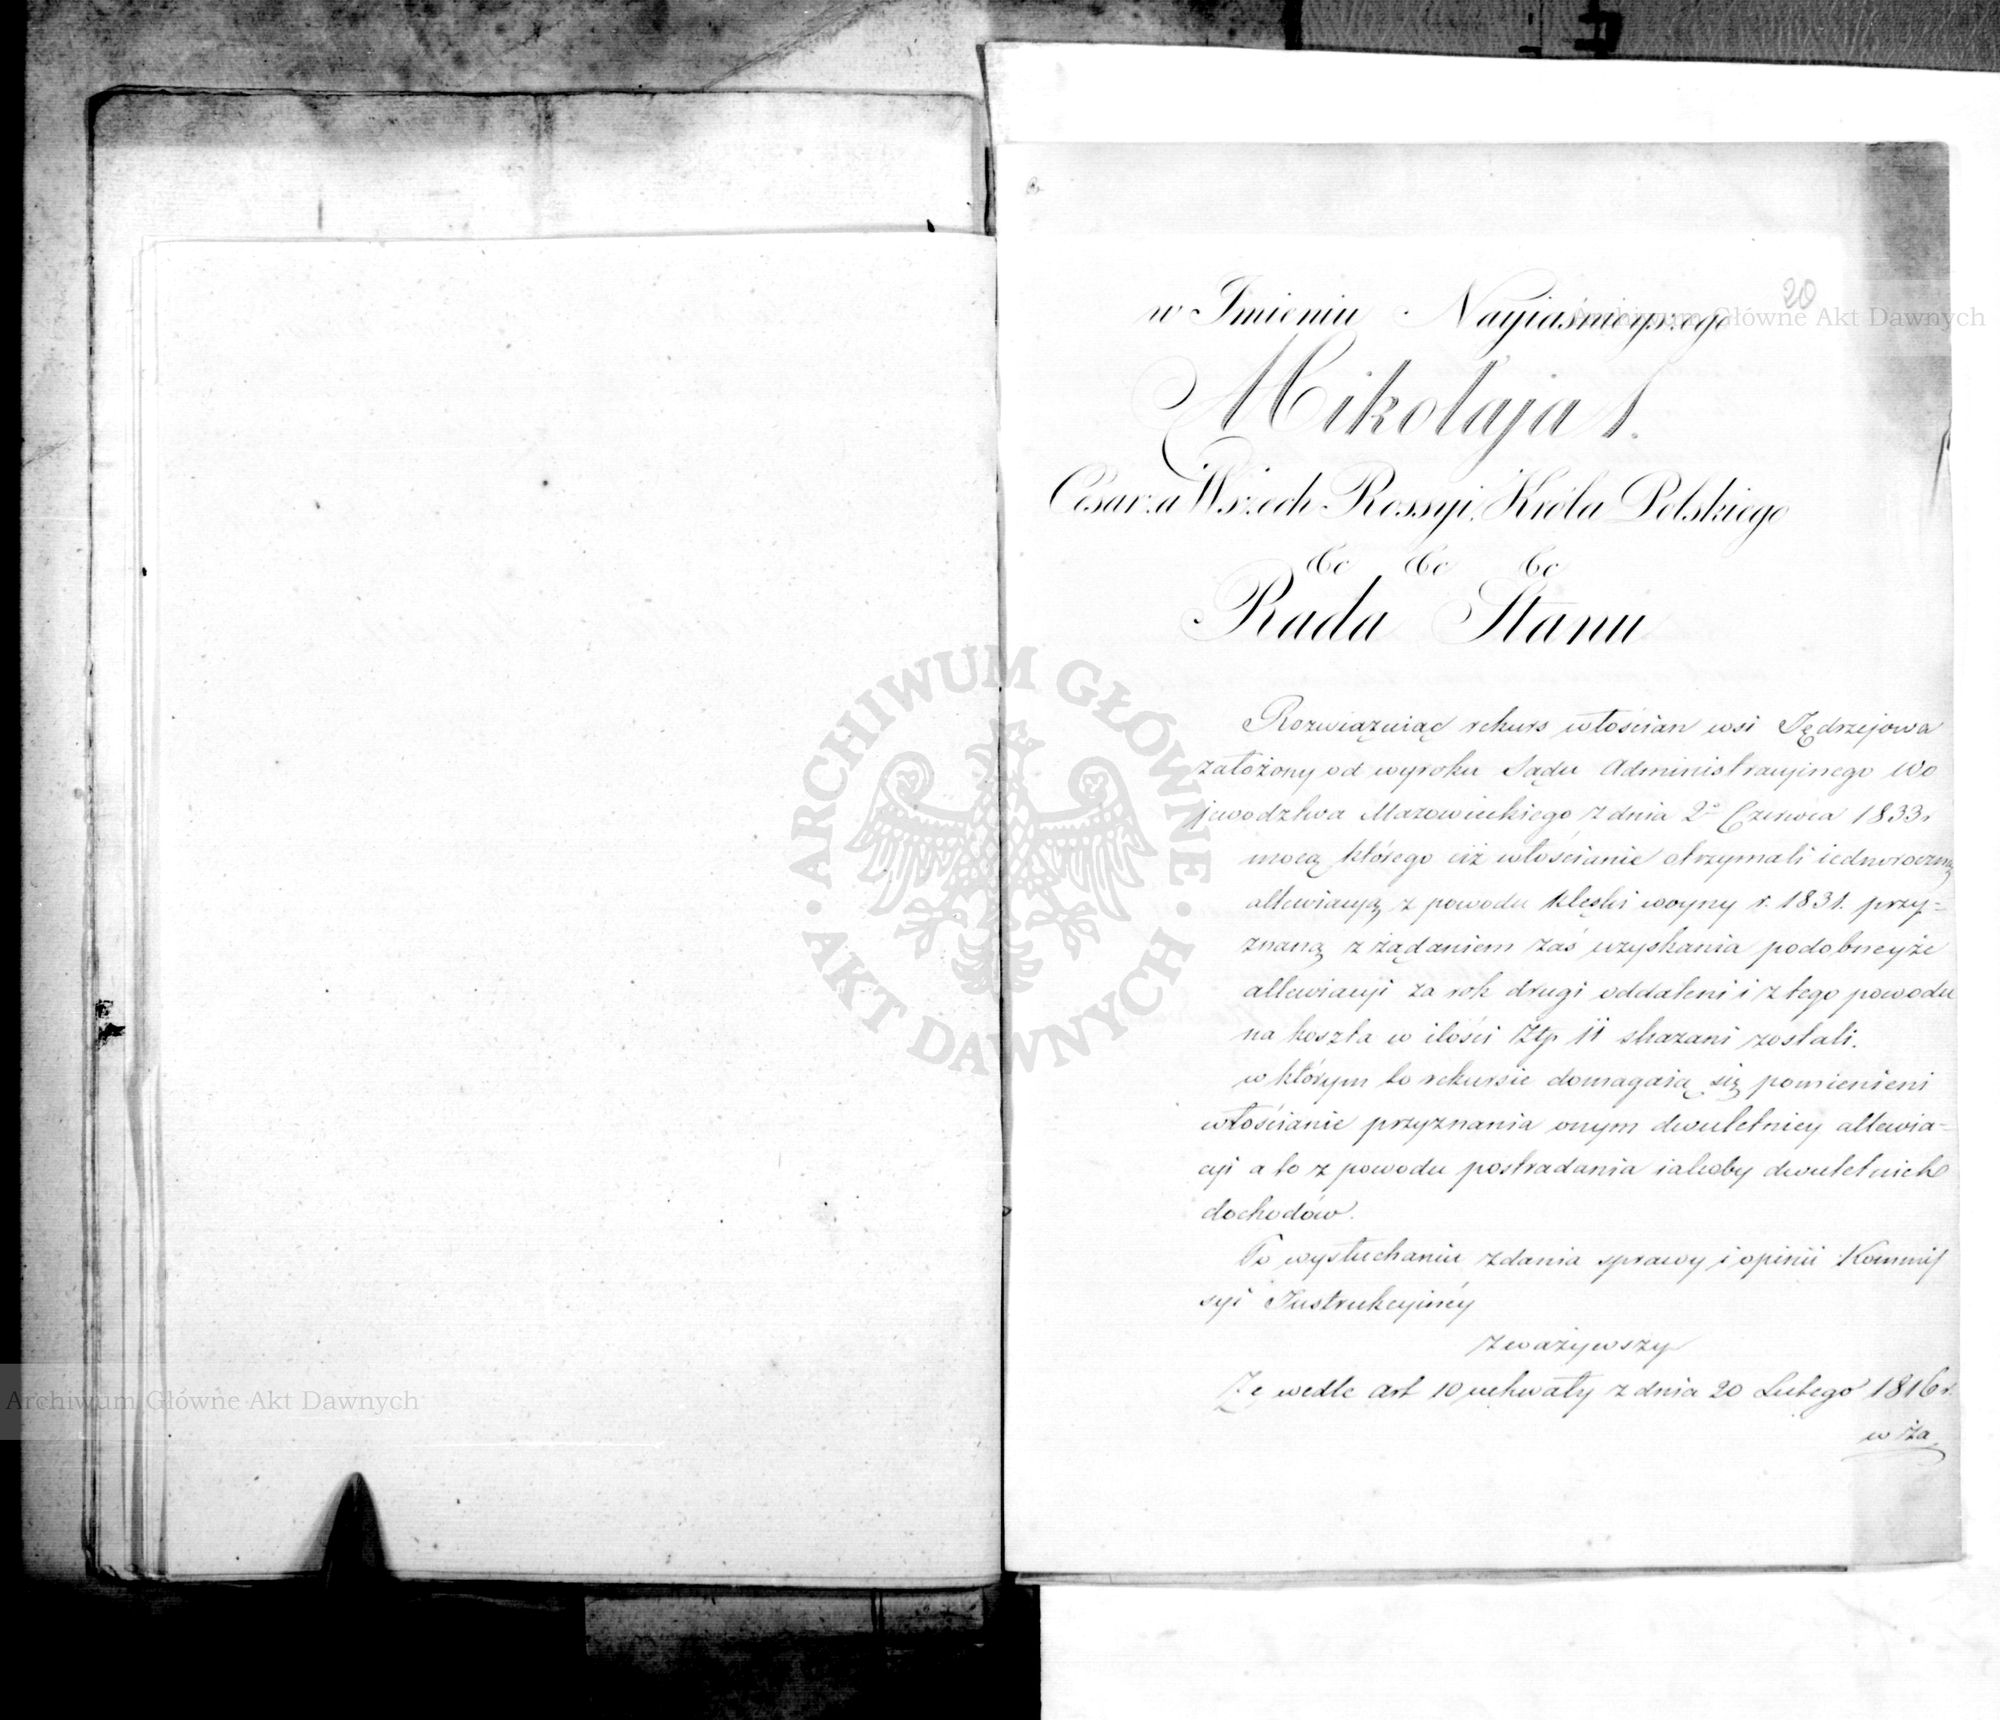 20
w Imieniu Nayiaśnieyszego
Mikołaja I.
Cesarza Wszech Rossyi, Króla Polskiego
&c &c &c
Rada Stanu
Rozwiązuiąc rekurs włościan wsi Jędrzejowa
założony od wyroku Sądu Administracyinego Wo
jewodztwa Mazowieckiego z dnia 2º Czerwca 1833 r
mocą którego ciż włościanie otrzymali iednoroczną
allewiacyą z powodu klęski woyny r. 1831. przy=
znaną z żądaniem zaś uzyskania podobneyże
allewiacyi za rok drugi oddaleni i z tego powodu
na koszta w ilości Złp 11 skazani zostali.
w którym to rekursie domagaią się pomienieni
włościanie przyznania onym dwuletniey allewia=
cyi a to z powodu postradania iakoby dwuletnich
dochodów.
Po wysłuchaniu zdania sprawy i opinii Kommis
syi Instrukcyiney
zważywszy
Że wedle art 10 uchwały z dnia 20 Lutego 1816 r.
w za
Archiwum Główne Akt Dawnych
ARCHIWUM GŁÓWNE · AKT DAWNYCH ·
Archiwum Główne Akt Dawnych